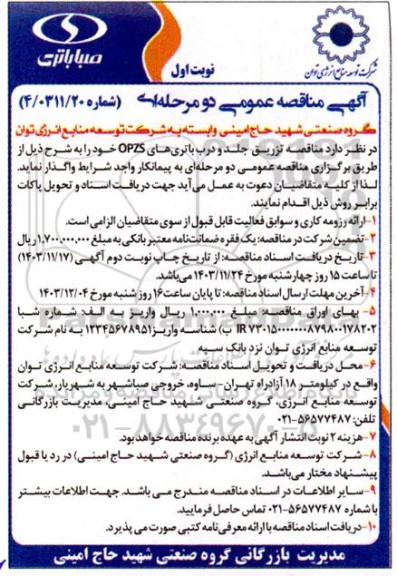 صبا باتری
شرکت توسعه منابع انرژی توان
نوبت اول
آگهی مناقصه عمومی دو مرحله‌ای (شماره ۴/۰۳۱۱/۲۰)
گروه صنعتی شهید حاج امینی وابسته به شرکت توسعه منابع انرژی توان
در نظر دارد مناقصه تزریق جلد و درب باتری‌های OPZS خود را به شرح ذیل از
طریق برگزاری مناقصه عمومی دو مرحله‌ای به پیمانکار واجد شرایط واگذار نماید.
لذا از کلیه متقاضیان دعوت به عمل می‌آید جهت دریافت اسناد و تحویل پاکات
برابر روش ذیل اقدام نمایند.
۱- ارائه رزومه کاری و سوابق فعالیت قابل قبول از سوی متقاضیان الزامی است.
۲- تضمین شرکت در مناقصه: یک فقره ضمانت‌نامه معتبر بانکی به مبلغ ۱,۷۰۰,۰۰۰,۰۰۰ ریال
۳- تاریخ دریافت اسناد مناقصه: از تاریخ چاپ نوبت دوم آگهی (۱۴۰۳/۱۱/۱۷)
تا ساعت ۱۵ روز چهارشنبه مورخ ۱۴۰۳/۱۱/۲۴ می‌باشد.
۴- آخرین مهلت ارسال اسناد مناقصه: تا پایان ساعت ۱۶ روز شنبه مورخ ۱۴۰۳/۱۲/۰۴
۵- بهای اوراق مناقصه مبلغ ۱,۰۰۰,۰۰۰ ریال واریز به الف شماره شبا
(IR ب) شناسه واریز ۱۲۳۴۵۶۷۸۹۵۱ به نام شرکت
توسعه منابع انرژی توان نزد بانک سپه
۶- محل دریافت و تحویل اسناد مناقصه: شرکت توسعه منابع انرژی توان
واقع در کیلومتر ۱۸ آزادراه تهران - ساوه، خروجی صباشهر به شهریار، شرکت
توسعه منابع انرژی، گروه صنعتی شهید حاج امینی، مدیریت بازرگانی
تلفن: ۵۶۵۷۷۴۸۷-۰۲۱
۷- هزینه ۲ نوبت انتشار آگهی به عهده برنده مناقصه خواهد بود.
۸- شرکت توسعه منابع انرژی (گروه صنعتی شهید حاج امینی) در رد یا قبول
پیشنهاد مختار می‌باشد.
۹- سایر اطلاعات در اسناد مناقصه مندرج می باشد. جهت اطلاعات بیشتر
با شماره ۵۶۵۷۷۴۸۷-۰۲۱ تماس حاصل فرمایید.
۱۰- دریافت اسناد مناقصه با ارائه معرفی‌نامه کتبی صورت می پذیرد.
مدیریت بازرگانی گروه صنعتی شهید حاج امینی
۰۲۱-۸۸۳۴۹۶۷۰-۵